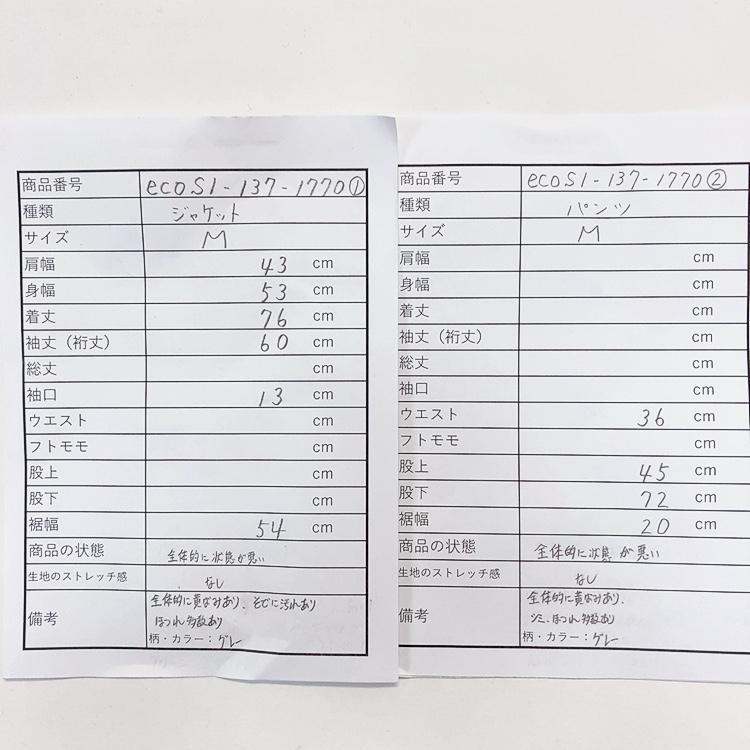 商品番号 ecoS1-137-1770①
種類 ジャケット
サイズ M
肩幅 43 cm
身幅 53 cm
着丈 76 cm
袖丈（裄丈） 60 cm
総丈 cm
袖口 13 cm
ウエスト cm
フトモモ cm
股上 cm
股下 cm
裾幅 54 cm
商品の状態 全体的に状態が悪い
生地のストレッチ感 なし
備考 全体的に黄なみあり、そでに汚れあり
ほつれ多数あり
柄・カラー：グレー
商品番号 ecoS1-137-1770②
種類 パンツ
サイズ M
肩幅 cm
身幅 cm
着丈 cm
袖丈（裄丈） cm
総丈 cm
袖口 cm
ウエスト 36 cm
フトモモ cm
股上 45 cm
股下 72 cm
裾幅 20 cm
商品の状態 全体的に状態が悪い
生地のストレッチ感 なし
備考 全体的に黄なみあり、
シミ、ほつれ多数あり
柄・カラー：グレー